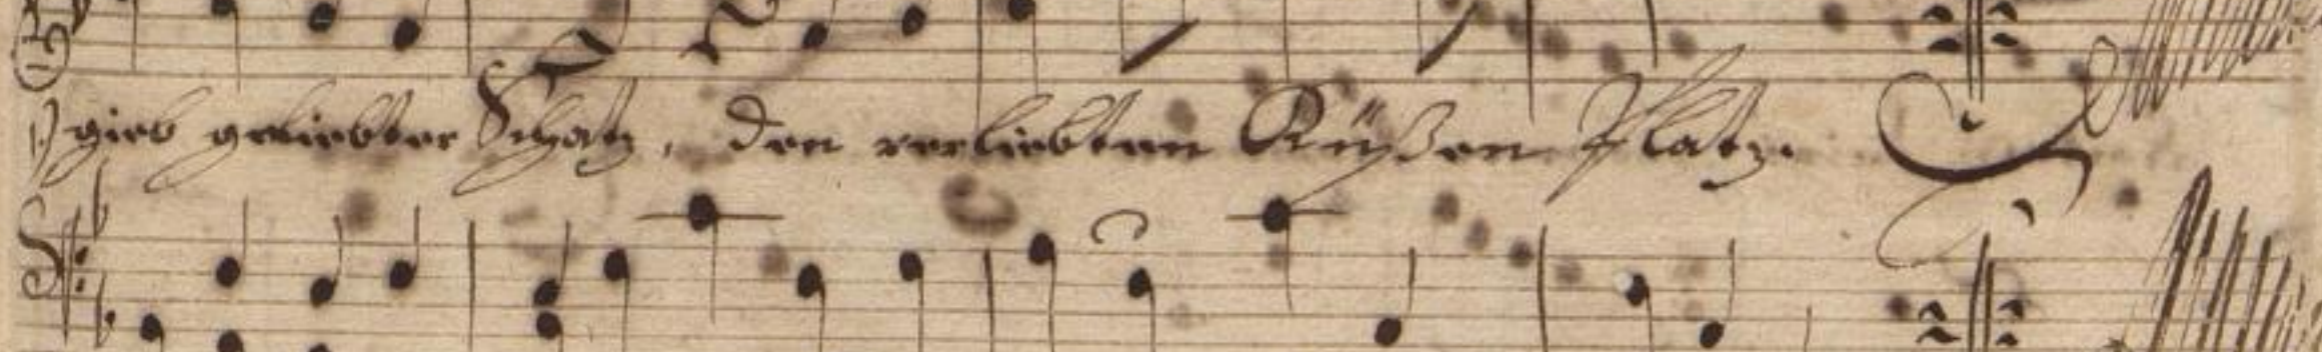 1.) gieb geliebter Schatz, den verliebten Küßen Platz.